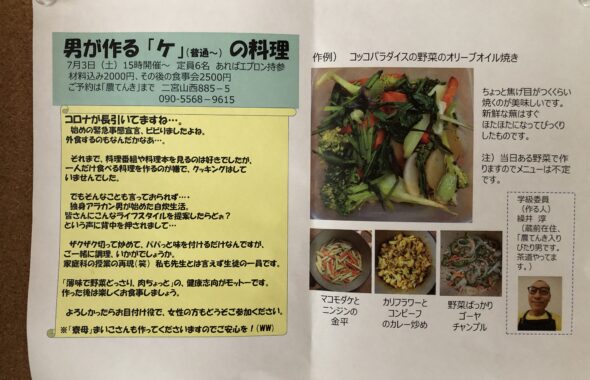 男が作る「ケ」(普通~)の料理
7月3日(土)15時開催~ 定員6名 あればエプロン持参
材料込み2000円、その後の食事会2500円
ご予約は「農てんき」まで 二宮山西885-5
090-5568-9615
コロナが長引いてますね…。
始めの緊急事態宣言、ビビりましたよね。
外食するのもなんだかなあ…。
それまで、料理番組や料理本を見るのは好きでしたが、
一人だけ食べる料理を作るのが嫌で、クッキングはして
いませんでした。
でもそんなことも言っておられず…・
独身アラカン男が始めた自炊生活。
皆さんにこんなライフスタイルを提案したらどぉ?
という声に背中を押されまして…
ザクザク切って炒めて、パパっと味を付けるだけなんですが、
ご一緒に調理、いかがでしょうか。
家庭科の授業の再現(笑) 私も先生とは言えず生徒の一員です。
「薄味で野菜どっさり、肉ちょっと」の、健康志向がモットーです。
作った後は楽しくお食事しましょう。
よろしかったらお目付け役で、女性の方もどうぞご参加ください。
※「寮母」まいこさんも作ってくださいますのでご安心を!(WW)
作例) コッコパラダイスの野菜のオリーブオイル焼き
ちょっと焦げ目がつくくらい
焼くのが美味しいです。
新鮮な蕪はすぐ
ほたほたになってびっくり
したものです。
注) 当日ある野菜で作
りますのでメニューは不定
です。
学級委員
(作る人)
緑井 淳
(蔵前在住、
「農てんき入り
びたり男です。
茶道やってま
す。)
マコモダケと
ニンジンの
金平
カリフラワーと
コンビーフ
のカレー炒め
野菜ばっかり
ゴーヤ
チャンプル